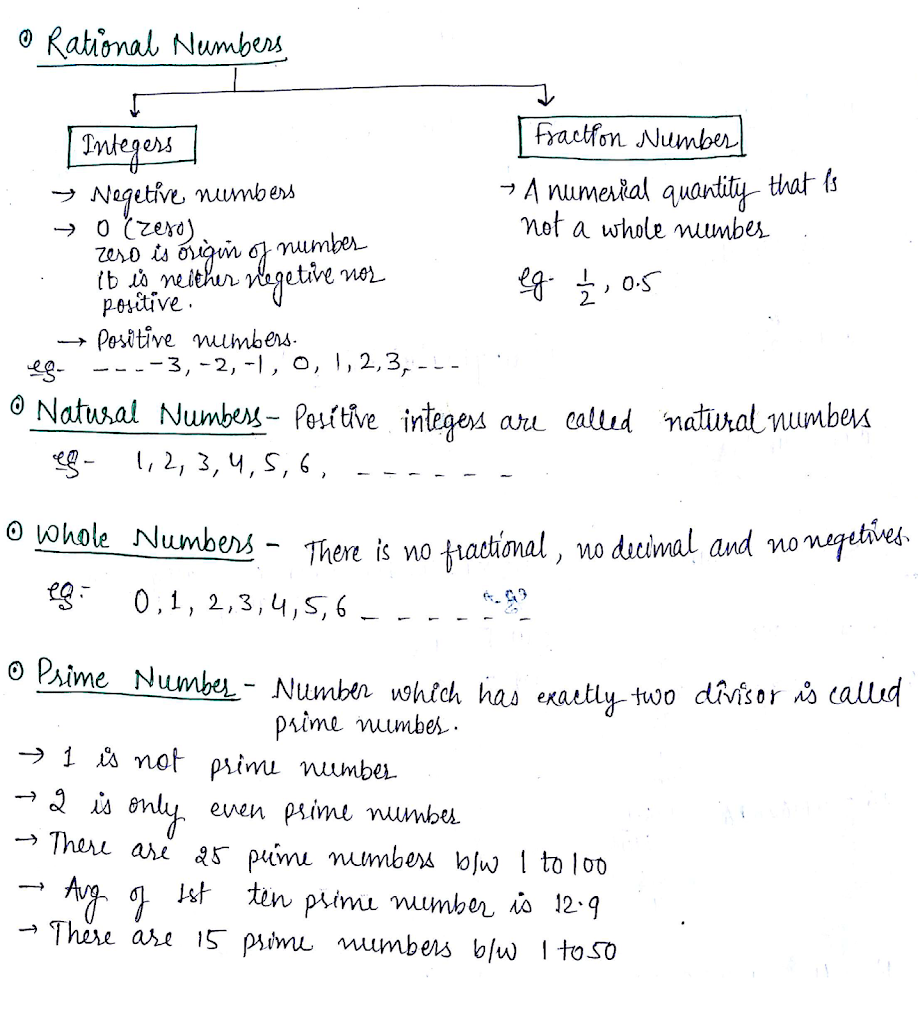 Rational Numbers
Integers
→ Negetive numbers
→ 0 (zero)
zero is origin of number
it is neither negetive nor
positive.
→ Positive numbers.
eg- ---- -3, -2, -1, 0, 1, 2, 3, ---
Fraction Number
→ A numerical quantity that is
not a whole number
eg 1/2, 0.5
Natural Numbers - Positive integers are called natural numbers
eg - 1, 2, 3, 4, 5, 6, - - - - - -
Whole Numbers - There is no fractional, no decimal and no negetives.
eg - 0, 1, 2, 3, 4, 5, 6 - - - - - -
Prime Number - Number which has exactly two divisor is called
prime number.
→ 1 is not prime number
→ 2 is only even prime number
→ There are 25 prime numbers b/w 1 to 100
→ Avg of 1st ten prime number is 12.9
→ There are 15 prime numbers b/w 1 to 50